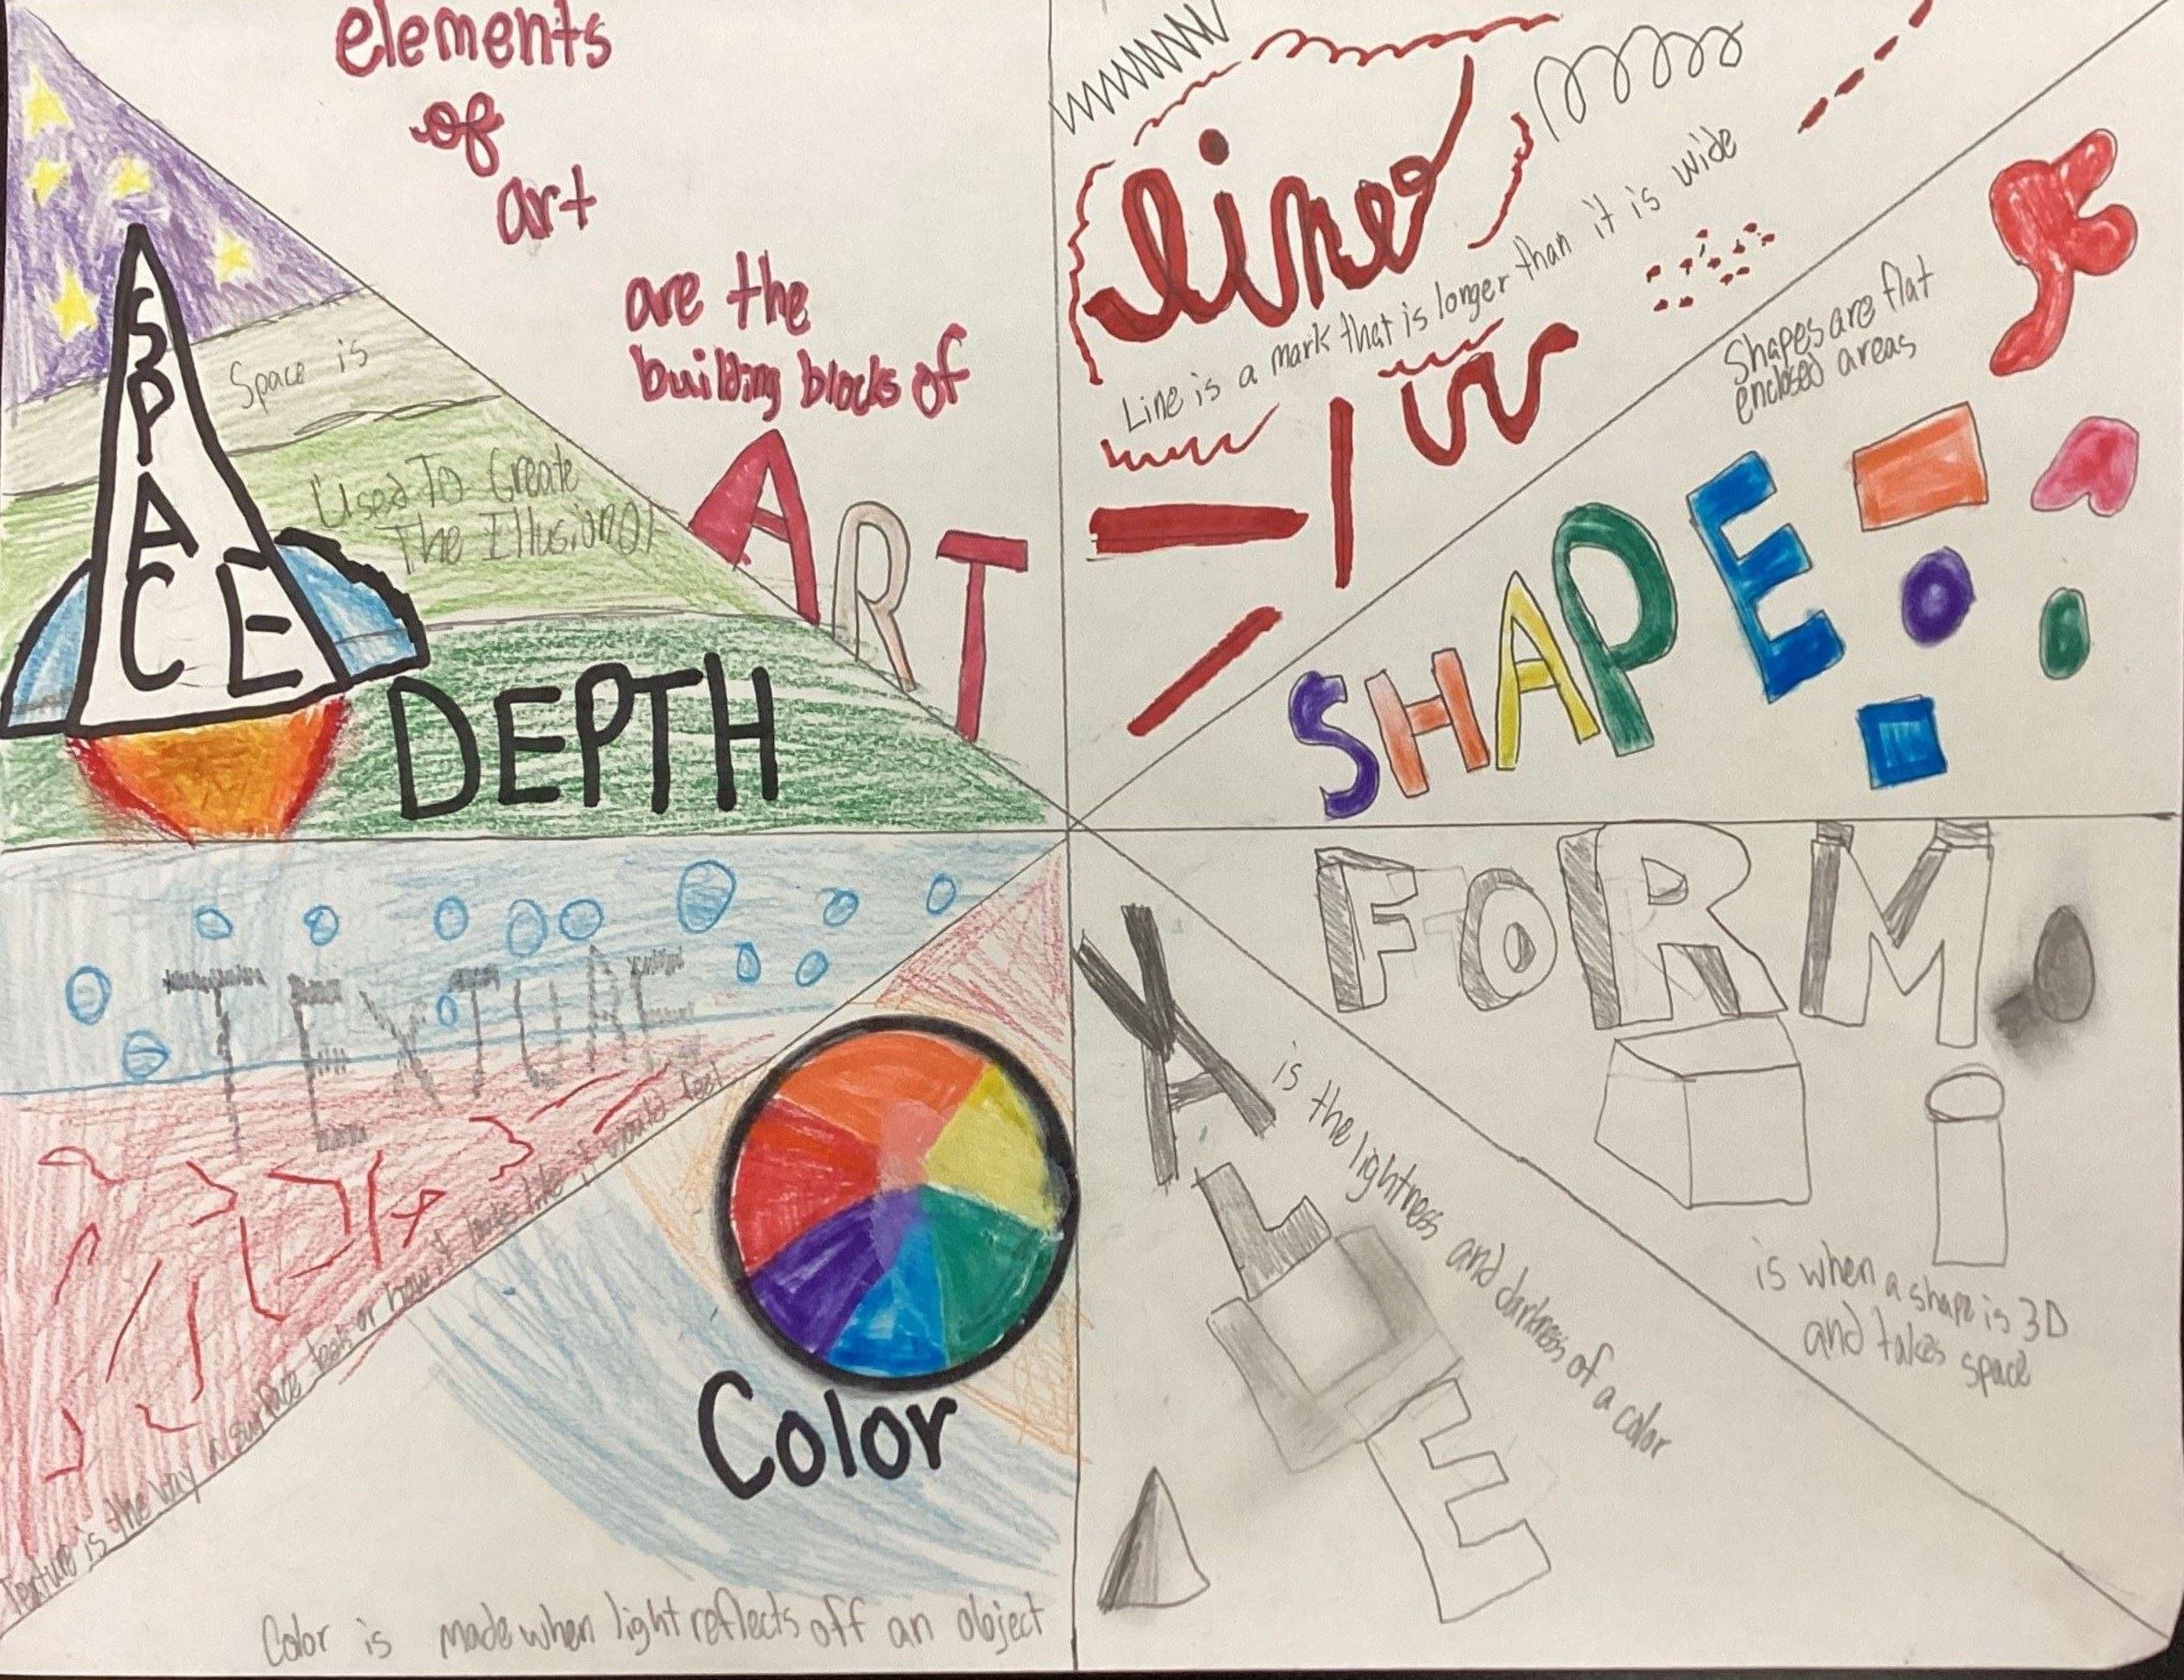 elements
of
art
are the
building blocks of
ART
line
Line is a mark that is longer than it is wide
Shapes are flat
enclosed areas
SHAPE
SPACE
Space is
Used To Create
The Illusion of
DEPTH
TEXTURE
Texture is the way a surface feels or how it looks like it would feel
Color
Color is made when light reflects off an object
VALUE
is the lightness and darkness of a color
FORM
is when a shape is 3D
and takes
space